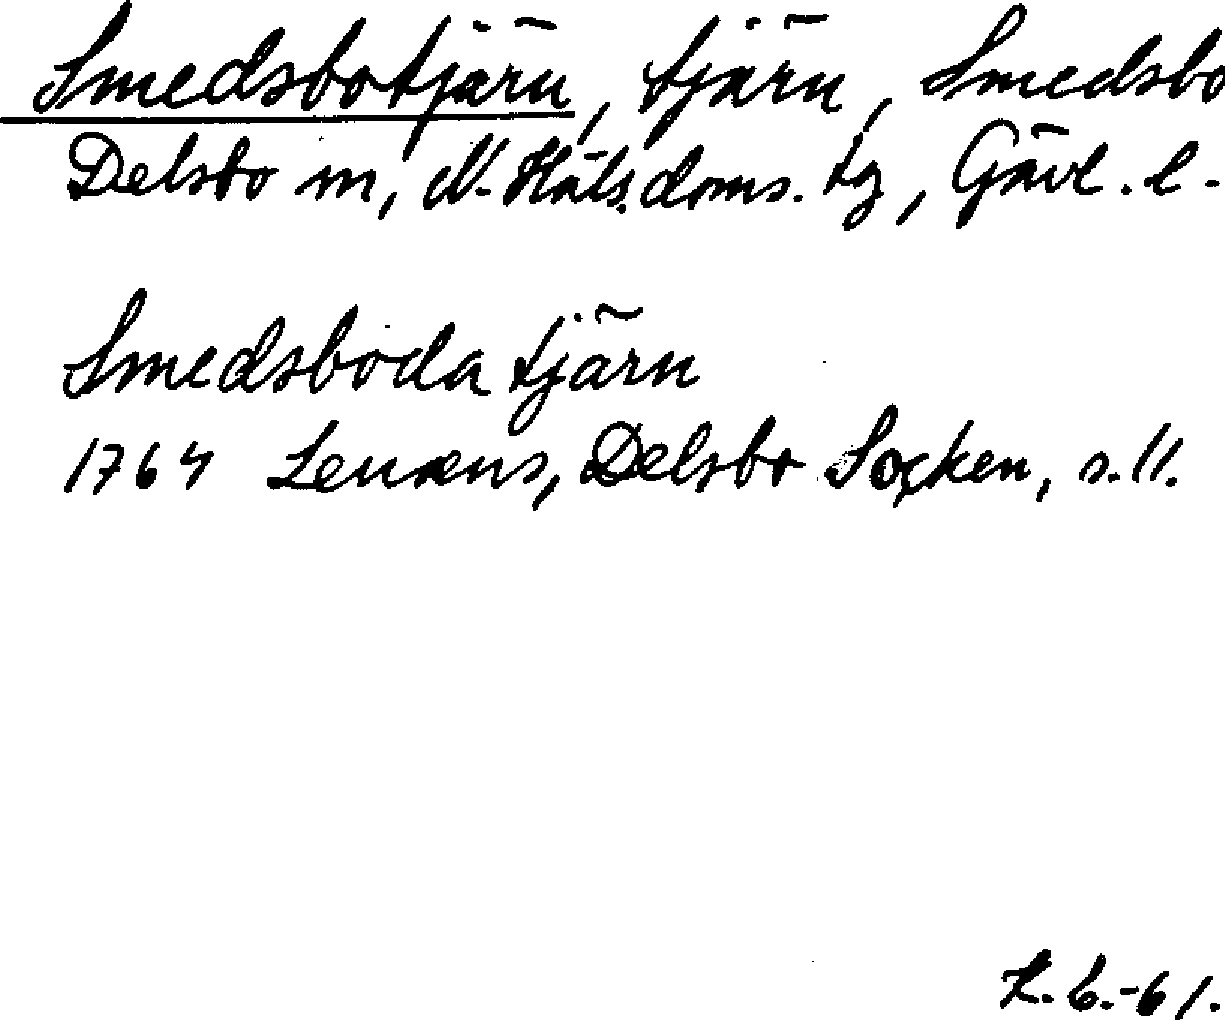 Smedsbotjärn, tjärn, Smedsbo
Delsbo m, N. Häls. doms. tg, Gävl. l.
Smedsboda tjärn
1764 Lenæus, Delsbo Socken, s. 11.
L. 6.-61.